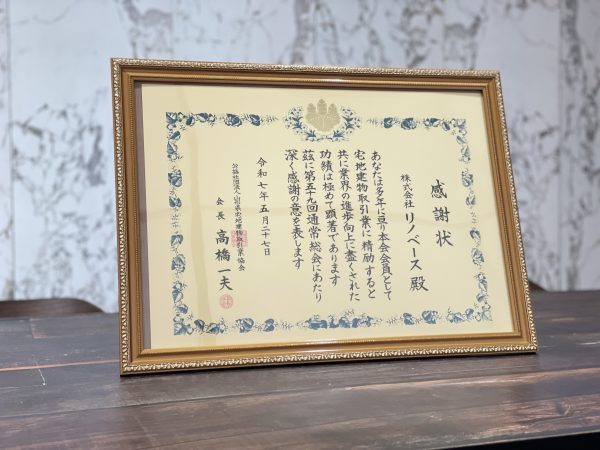 感謝状
株式会社 リノベース 殿
あなたは多年に亘り本会会員として
宅地建物取引業に精励すると
共に業界の進歩向上に盡くされた
功績は極めて顕著であります
茲に第五十九回通常総会にあたり
深く感謝の意を表します
令和七年五月二十七日
公益社団法人 山形県宅地建物取引業協会
会長 高橋一夫